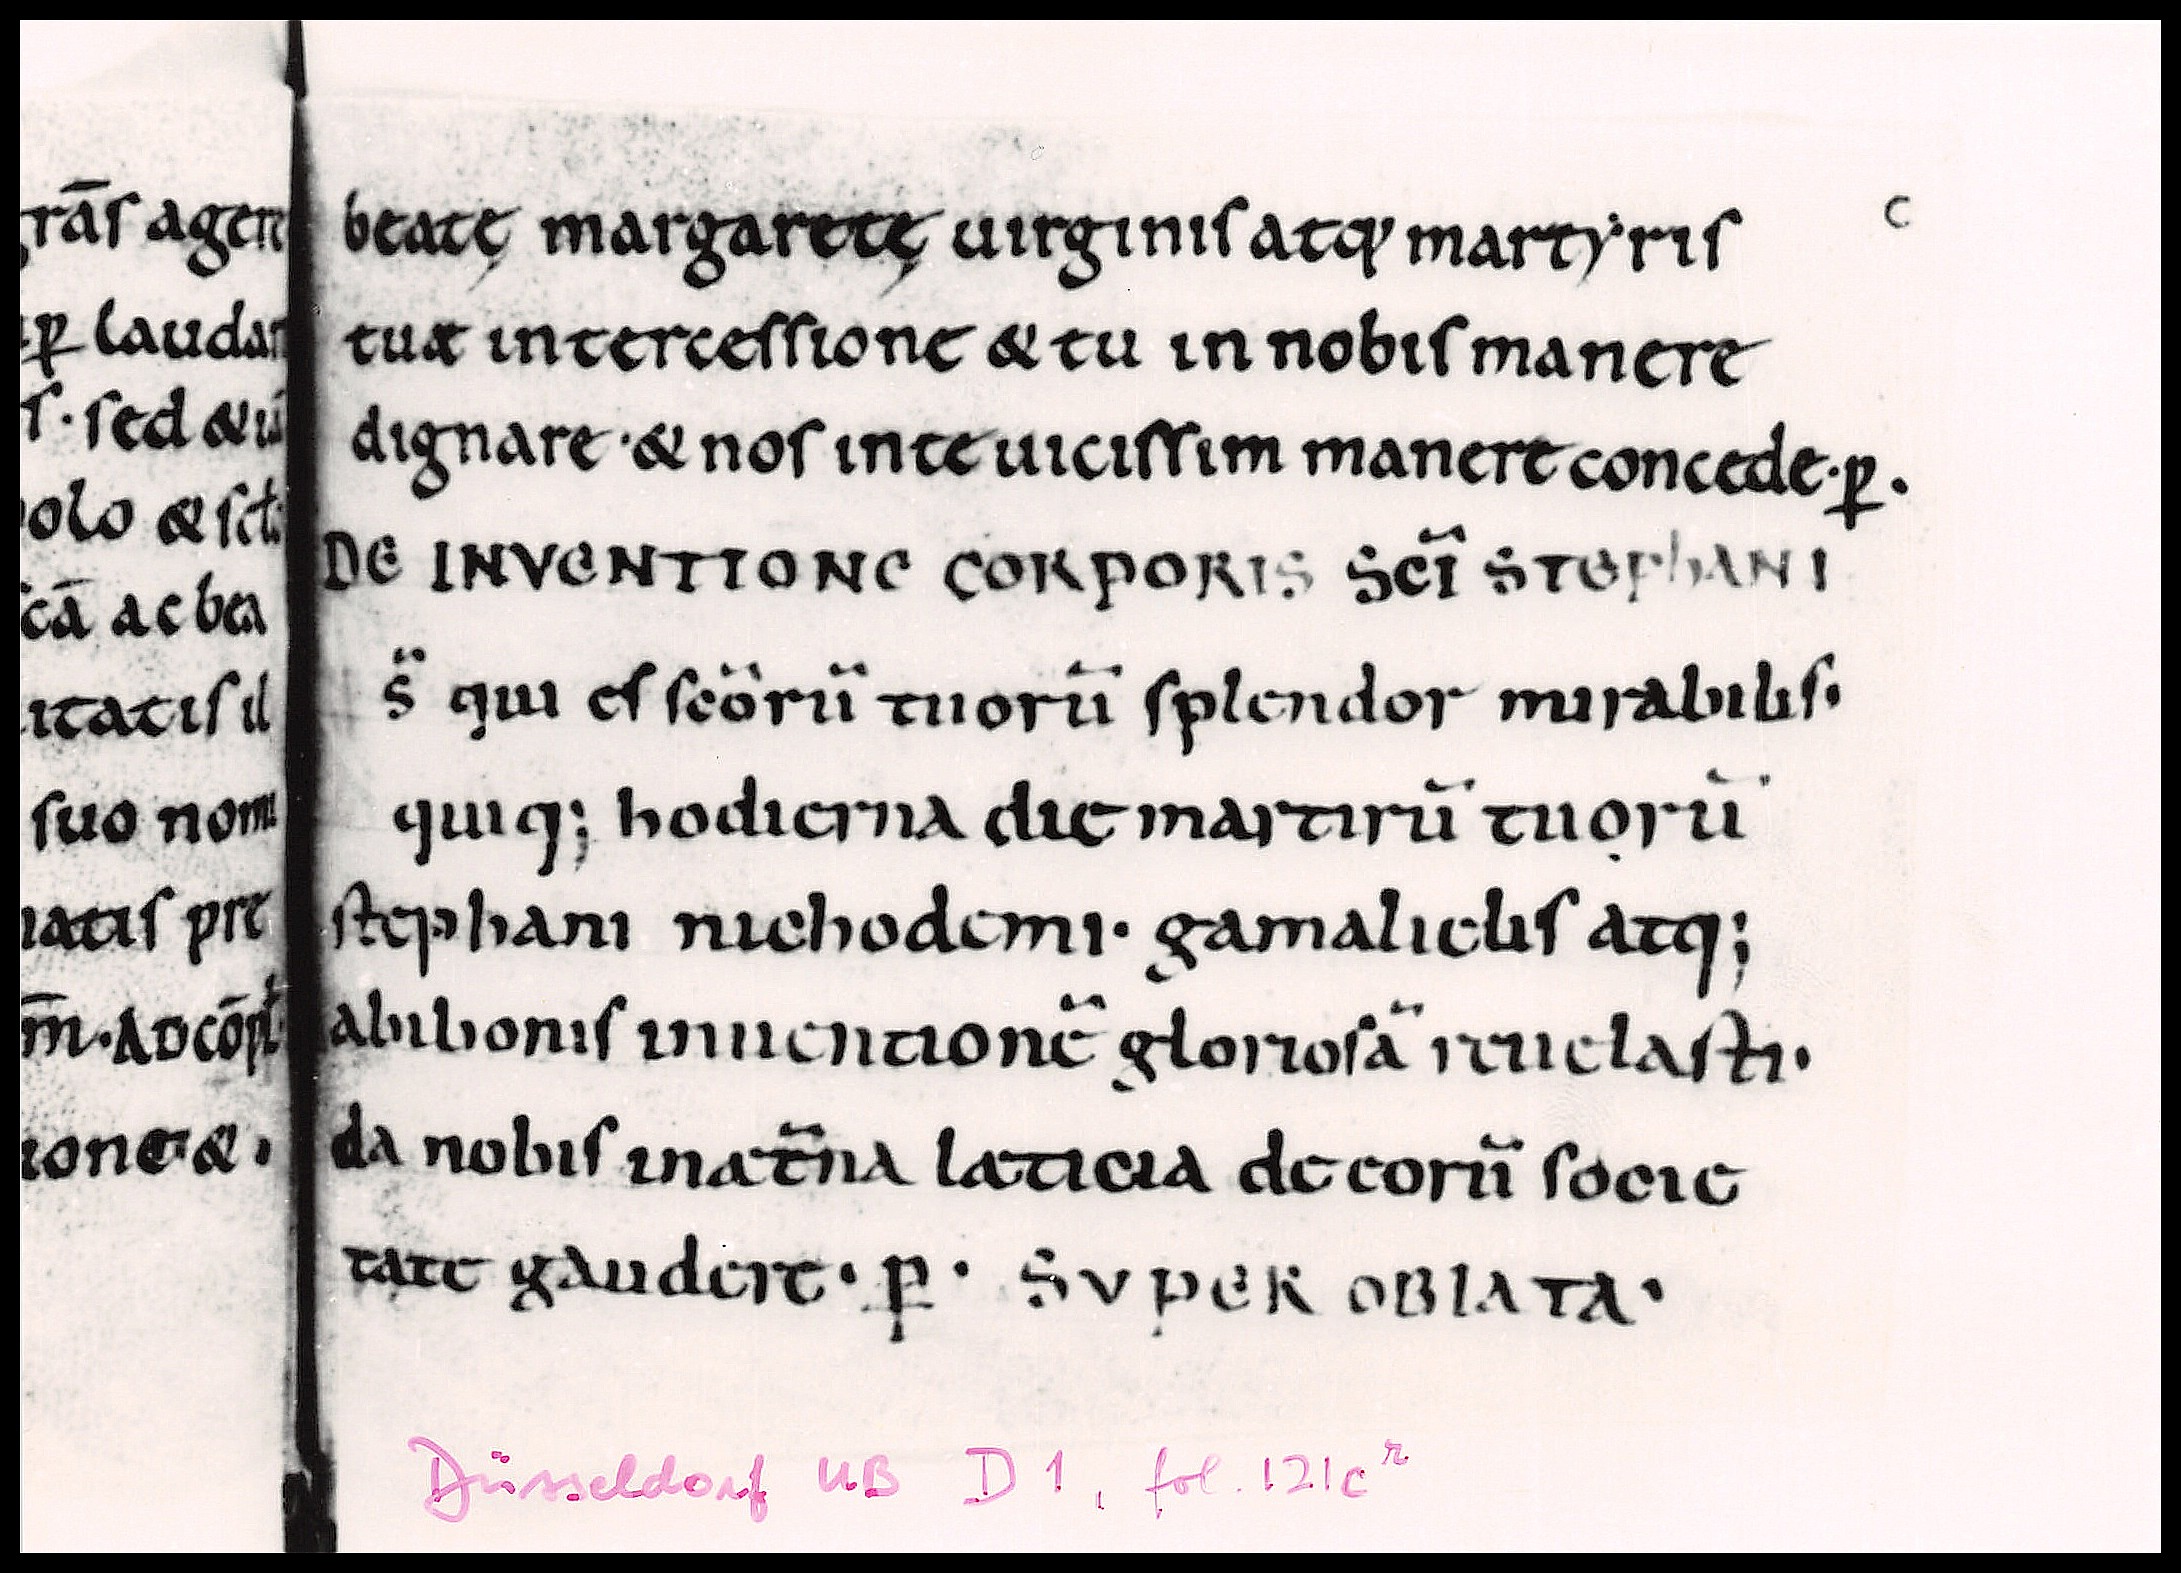 rās agere
ꝑ laudan
s · sed & ū
olo & scī
cā ac bea
itatis il
suo nomi
iatis pre
m̄ · AD CŌPL
ione & ·
c
beatę margaretę uirginis atq; martyris
tuæ intercessione & tu in nobis manere
dignare · & nos in te uicissim manere concede · ꝑ ·
DE INVENTIONE CORPORIS SCĪ STEPhANI
S̄ qui es scōrū tuorū splendor mirabilis ·
quiq; hodierna die martirū tuorū
stephani nichodemi · gamalielis atq;
abibonis inuentionē gloriosā reuelasti ·
da nobis in æt̄na læticia de eorū socie
tate gaudere · ꝑ · SVPER OBLATA ·
Düsseldorf UB D 1, fol. 121cʳ